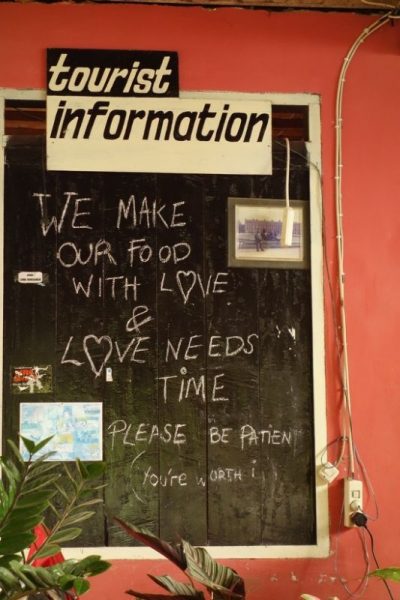 tourist
information
WE MAKE
OUR FOOD
WITH LOVE
&
LOVE NEEDS
TIME
PLEASE BE PATIEN
(YOU'RE WORTH i